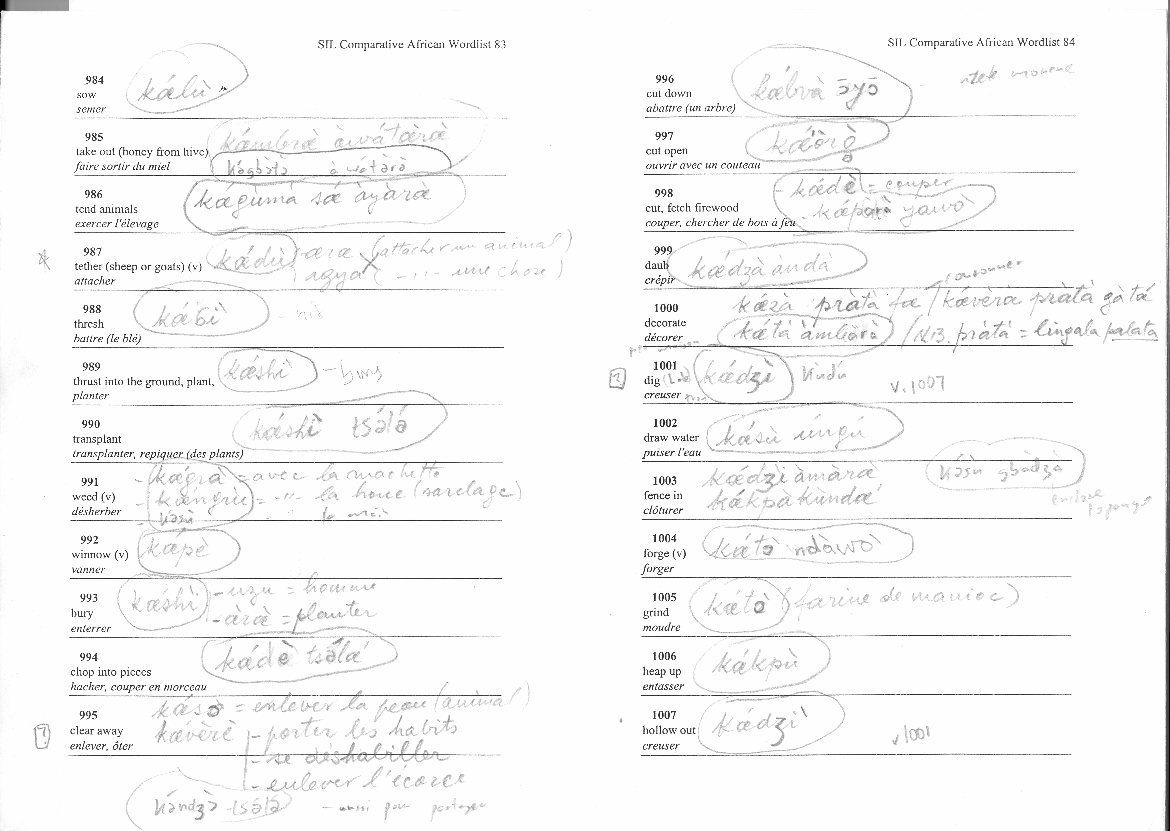 SIL Comparative African Wordlist 83
984
sow
semer
kœ́lù
985
take out (honey from hive)
faire sortir du miel
kœ́mbrœ̀ àwátœ̀rœ̀
986
tend animals
exercer l'élevage
kœ́gùmà sœ́ àyàrà
987
tether (sheep or goats) (v)
attacher
kœ́dù
(attacher un animal)
-"- une chose)
988
thresh
battre (le blé)
989
thrust into the ground, plant,
planter
kœ́shì - bury
990
transplant
transplanter, repiquer (des plants)
kœ́shì tsə́lə́
991
weed (v)
désherber
- kœ́grà = avec la machette
- kœ́ngrù = -"- la houe (sarclage)
992
winnow (v)
vanner
kœ́pè
993
bury
enterrer
kœ́shì - uzu = homme
- œ̀rœ̀ = planter
994
chop into pieces
hacher, couper en morceau
kœ́dè tsə́lœ́
995
clear away
enlever, ôter
= enlever la peau (animal)
kœ́vèrè - porter les habits
- se déshabiller
- enlever l'écorce
kə́ndʒə̀ tsə́lə́ - aussi pour
SIL Comparative African Wordlist 84
996
cut down
abattre (un arbre)
kœ́bvà ɔ̄yɔ̄
997
cut open
ouvrir avec un couteau
998
cut, fetch firewood
couper, chercher de bois à feu
- kœ́dè = couper
999
daub
crépir
kœ́dzà àndá
1000
decorate
décorer
kœ́zà pràtà fœ / kœ́vèrœ pràtà gàtá
kœ́tá àmbœ̀rà / N.B. prátá = lingala palata
1001
dig
creuser
kœ́dʒì
v. 1007
1002
draw water
puiser l'eau
kœ́sù úngú
1003
fence in
clôturer
kœ́dʒì àmàrœ̀
kœ́kpà kùndœ́
kə́sù gbàdʒà
1004
forge (v)
forger
kœ́tə̀ ndàwò
1005
grind
moudre
kœ́tə̀ (farine de manioc)
1006
heap up
entasser
kœ́kpù
1007
hollow out
creuser
kœ́dʒì
v 1001